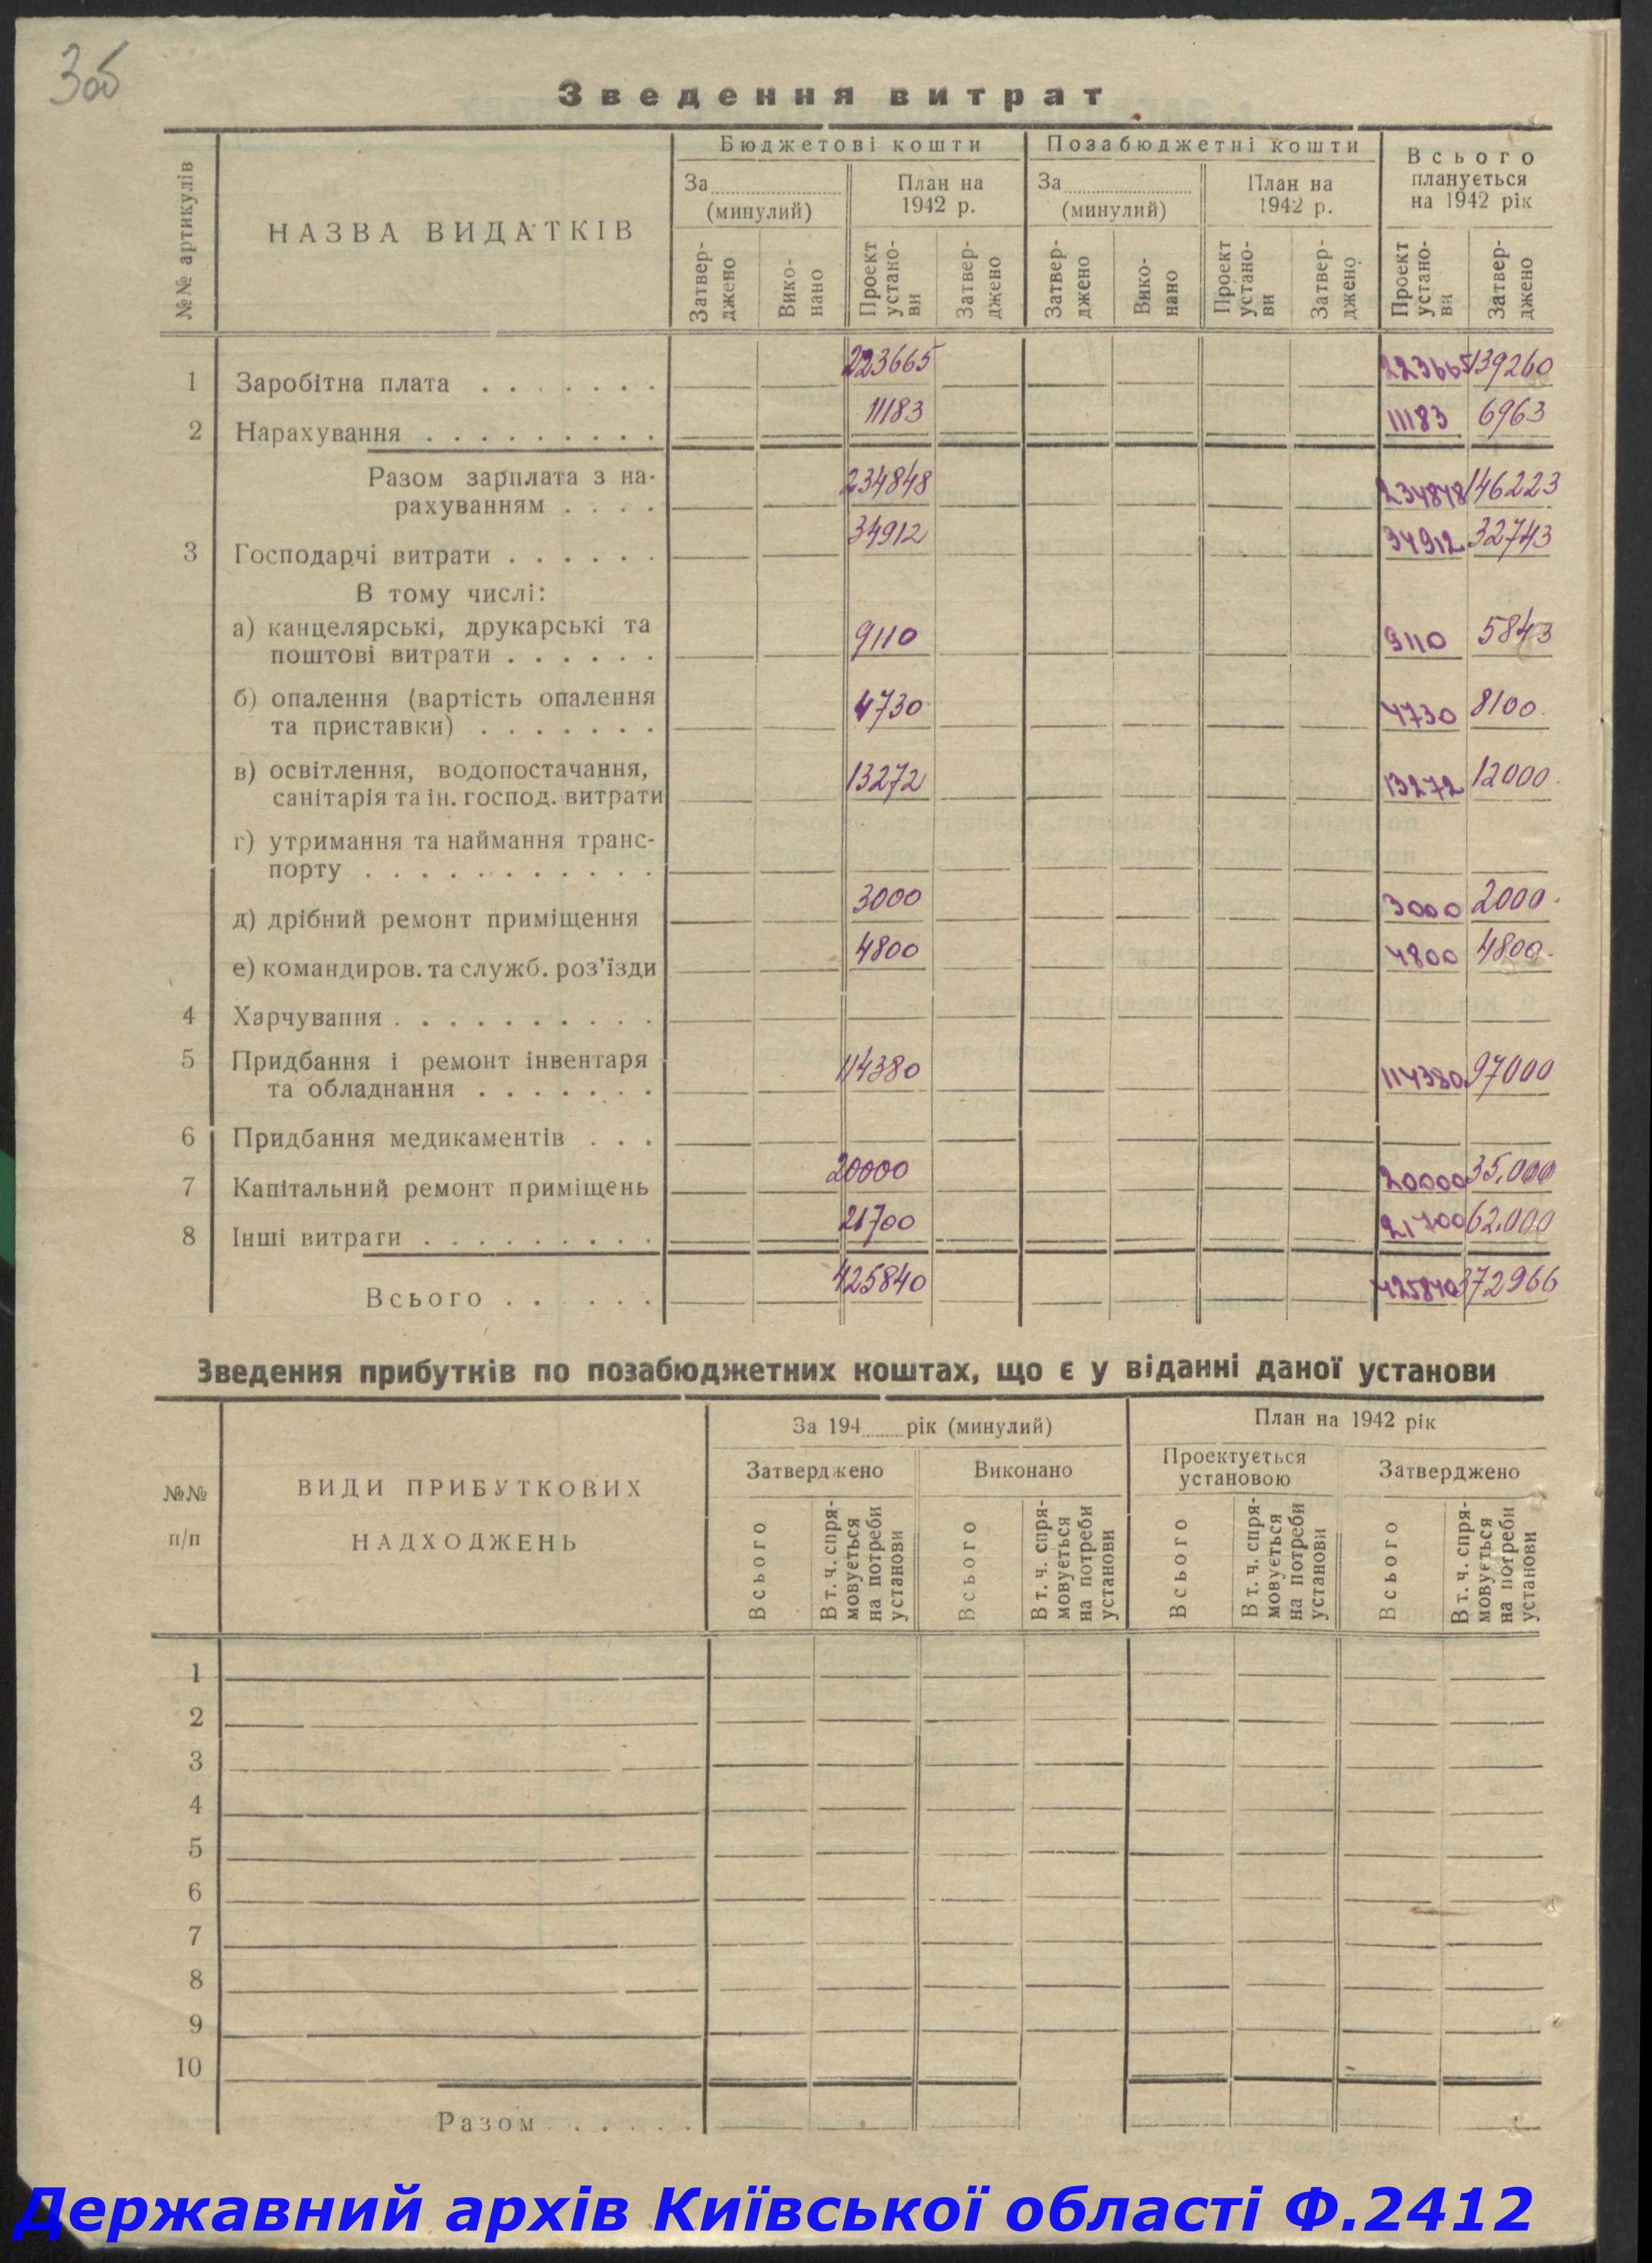 3об
Зведення витрат
№№ артикулів
НАЗВА ВИДАТКІВ
Бюджетові кошти
Позабюджетні кошти
Всього планується на 1942 рік
За
(минулий)
План на 1942 р.
За
(минулий)
План на 1942 р.
Затвер-джено
Вико-нано
Проект устано-ви
Затвер-джено
Затвер-джено
Вико-нано
Проект устано-ви
Затвер-джено
Проект устано-ви
Затвер-джено
1 Заробітна плата . . . . . . . 223665 223665 139260
2 Нарахування . . . . . . . . . . 11183 11183 6963
Разом зарплата з на-
рахуванням . . . . 234848 234848 146223
3 Господарчі витрати . . . . . . 34912 34912 32743
В тому числі:
а) канцелярські, друкарські та
поштові витрати . . . . . . 9110 9110 5843
б) опалення (вартість опалення
та приставки) . . . . . . . 4730 4730 8100
в) освітлення, водопостачання,
санітарія та ін. господ. витрати 13272 13272 12000
г) утримання та наймання транс-
порту . . . . . . . . . . .
д) дрібний ремонт приміщення 3000 3000 2000
е) командиров. та служб. роз’їзди 4800 4800 4800
4 Харчування . . . . . . . . . .
5 Придбання і ремонт інвентаря
та обладнання . . . . . . . 114380 114380 97000
6 Придбання медикаментів . . .
7 Капітальний ремонт приміщень 20000 20000 35.000
8 Інші витрати . . . . . . . . . 21700 21700 62.000
Всього . . . . . . 425840 425840 372966
Зведення прибутків по позабюджетних коштах, що є у віданні даної установи
№№ п/п
ВИДИ ПРИБУТКОВИХ
НАДХОДЖЕНЬ
За 194 рік (минулий)
План на 1942 рік
Затверджено
Виконано
Проектується установою
Затверджено
Всього
В т. ч. спря-мовується на потреби установи
Всього
В т. ч. спря-мовується на потреби установи
Всього
В т. ч. спря-мовується на потреби установи
Всього
В т. ч. спря-мовується на потреби установи
1
2
3
4
5
6
7
8
9
10
Разом . . . . . .
Державний архів Київської області Ф.2412